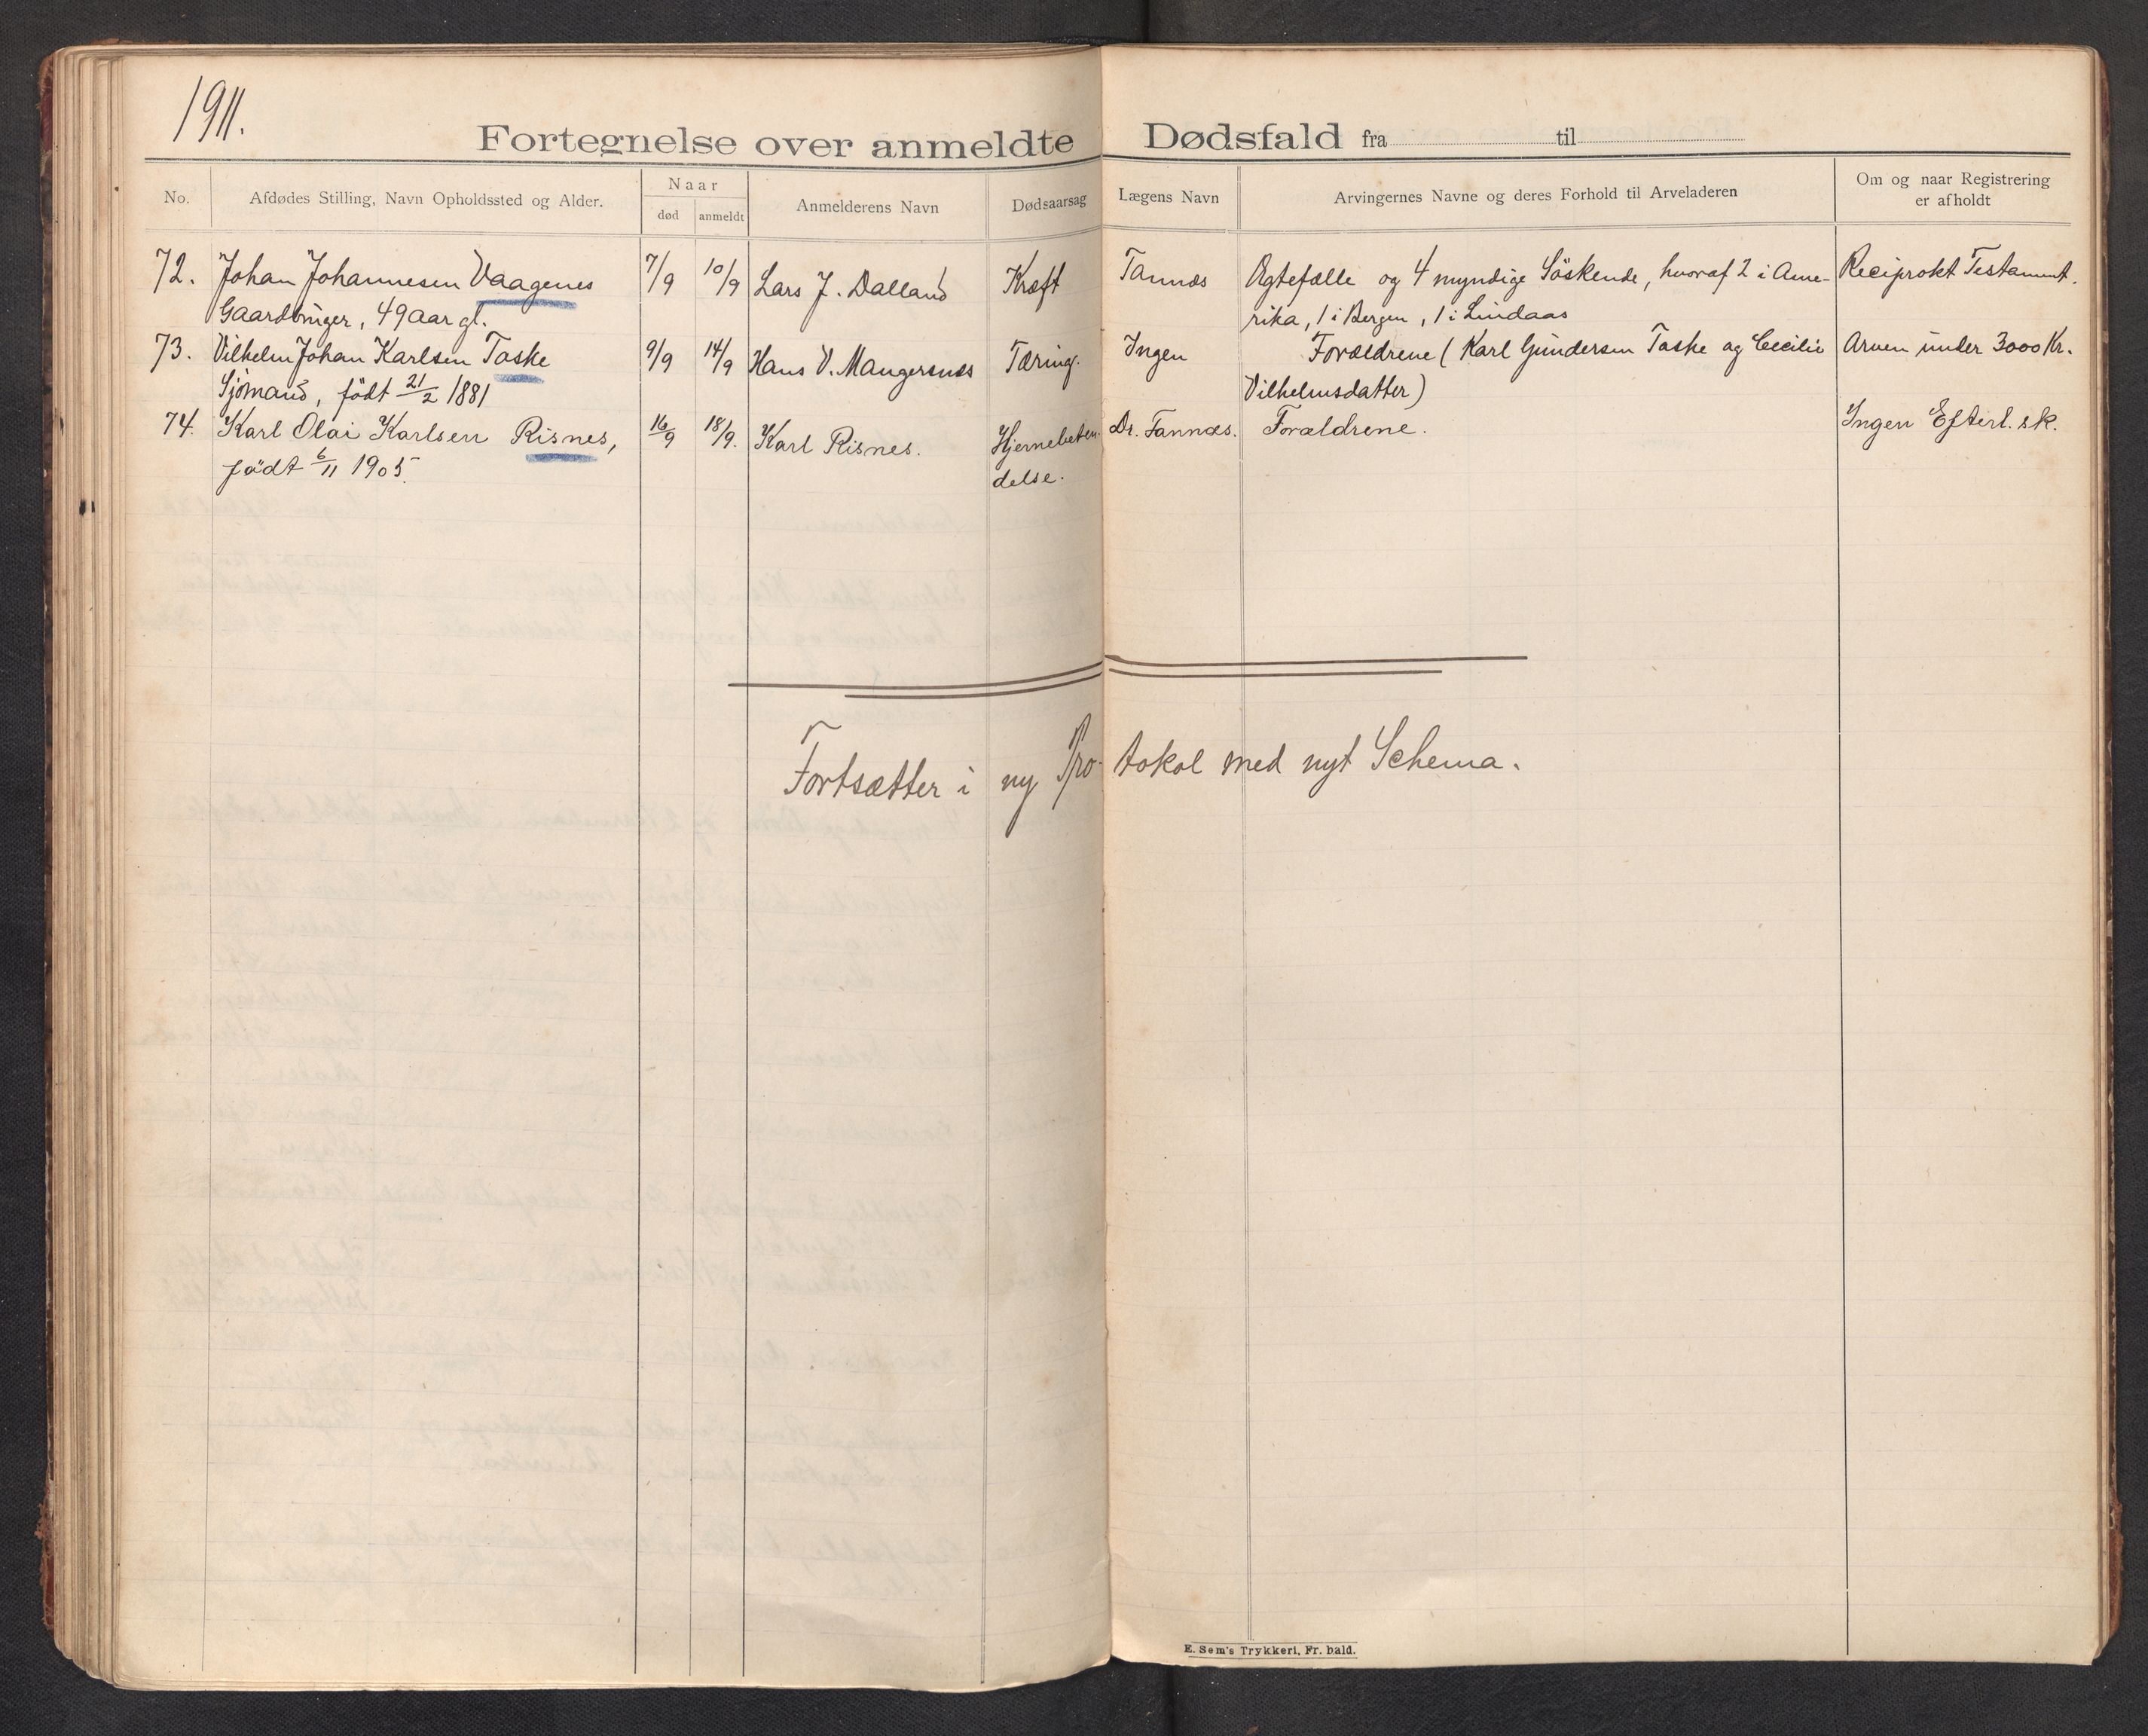 1911.
Fortegnelse over anmeldte Dødsfald fra til
No.
Afdødes Stilling, Navn Opholdssted og Alder.
Naar
død
anmeldt
Anmelderens Navn
Dødsaarsag
Lægens Navn
Arvingernes Navne og deres Forhold til Arveladeren
Om og naar Registrering
er afholdt
72. Johan Johannesen Vaagenes 7/9 10/9 Lars J. Dalland Kræft Tannæs Ægtefælle og 4 myndige Söskende, hvoraf 2 i Ame- Reciprokt Testament.
Gaardbruger, 49 Aar gl. rika, 1 i Bergen, 1 i Lindaas
73. Vilhelm Johan Karlsen Taske 9/9 14/9 Hans V. Mangersnes Tæring. Ingen Forældrene (Karl Gundersen Taske og Cecilie Arven under 3000 Kr.
Sjömand, födt 21/2 1881 Vilhelmsdatter)
74. Karl Olai Karlsen Risnes, 16/9 18/9. Karl Risnes. Hjernebeten- Dr. Tannæs. Forældrene. Ingen Efterl. sk.
födt 6/11 1905. delse.
Fortsætter i ny Pro- tokol med nyt Schema.
E. Sem's Trykkeri, Fr. hald.